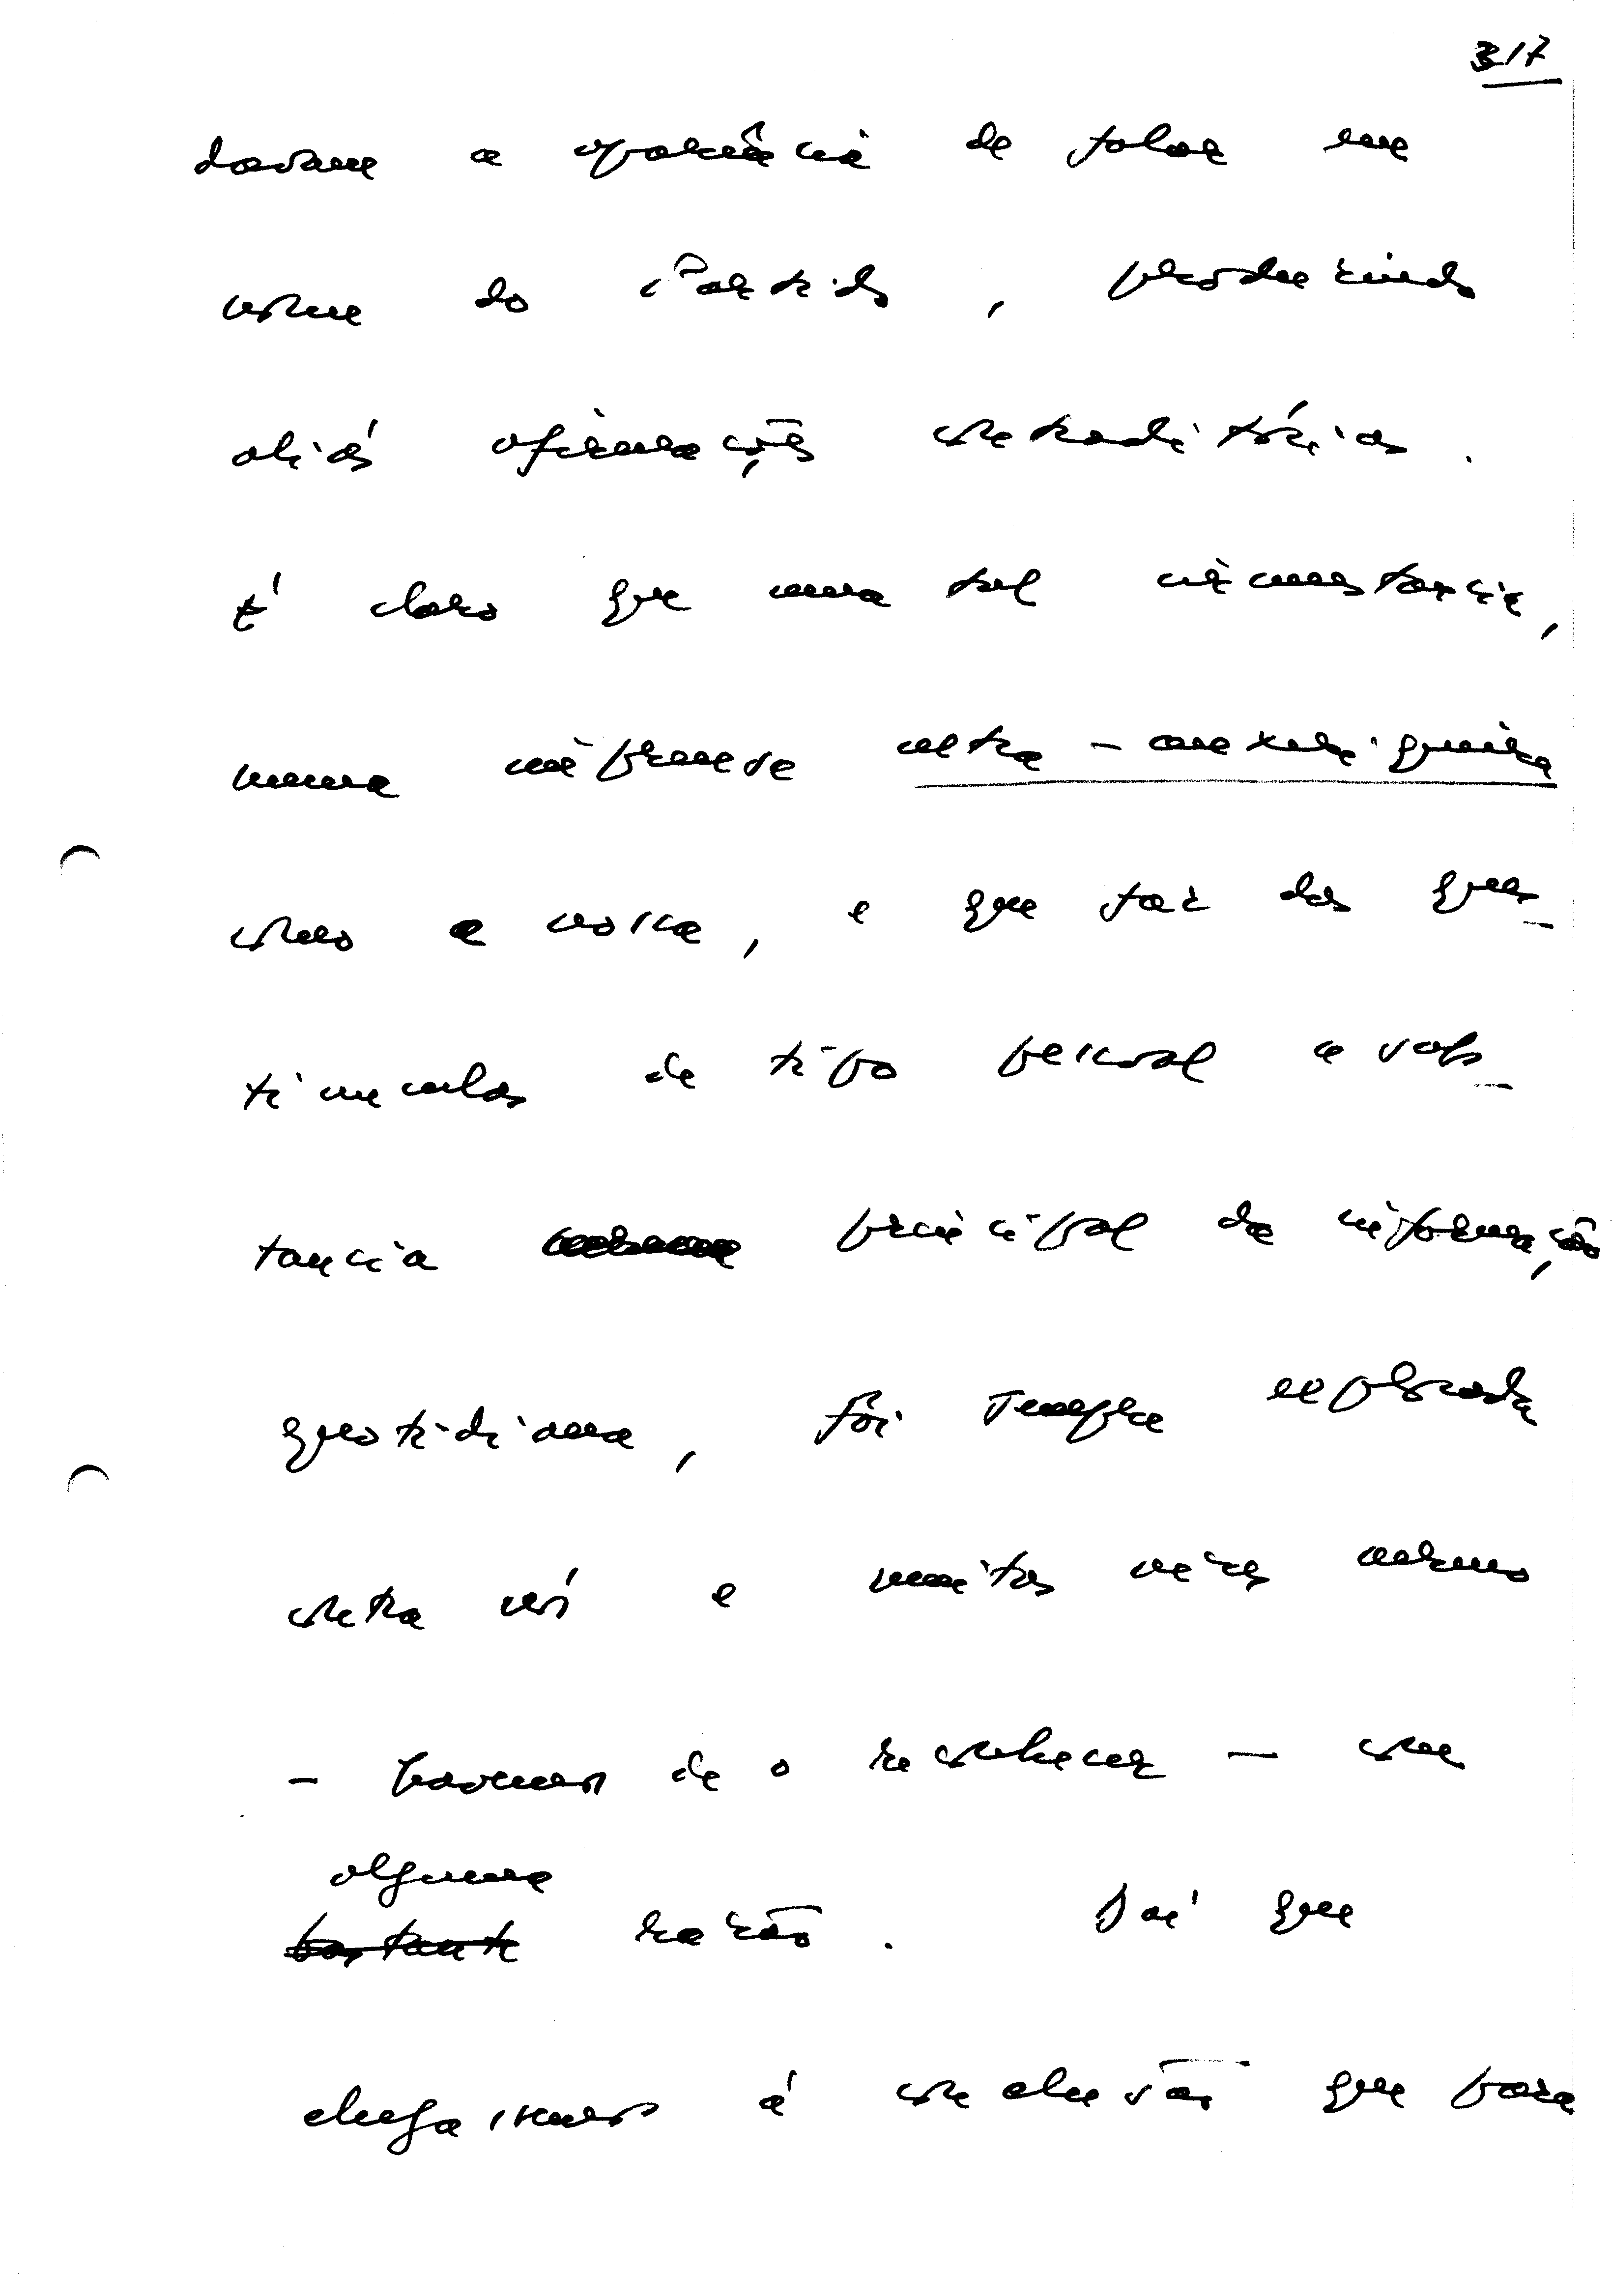 317
davam a aparência de falar em
nome do Partido, produzindo
aliás afirmações contraditórias.
É claro que uma tal circunstancia,
numa imprensa ultra-anti
como a nossa, e que faz das ques-
de tipo pessoal a subs-
tancia principal da informação
quotidiana, foi sempre explorada
contra nós e muitas vezes mesmo
- havemos de o reconhecer - com
alguma
bastante razão. Daí que
chegassemos á conclusão que para